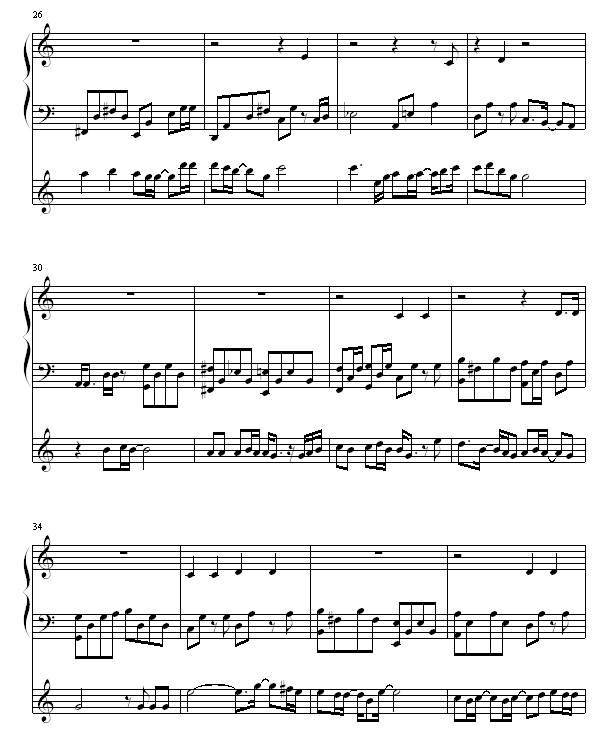 26
30
34